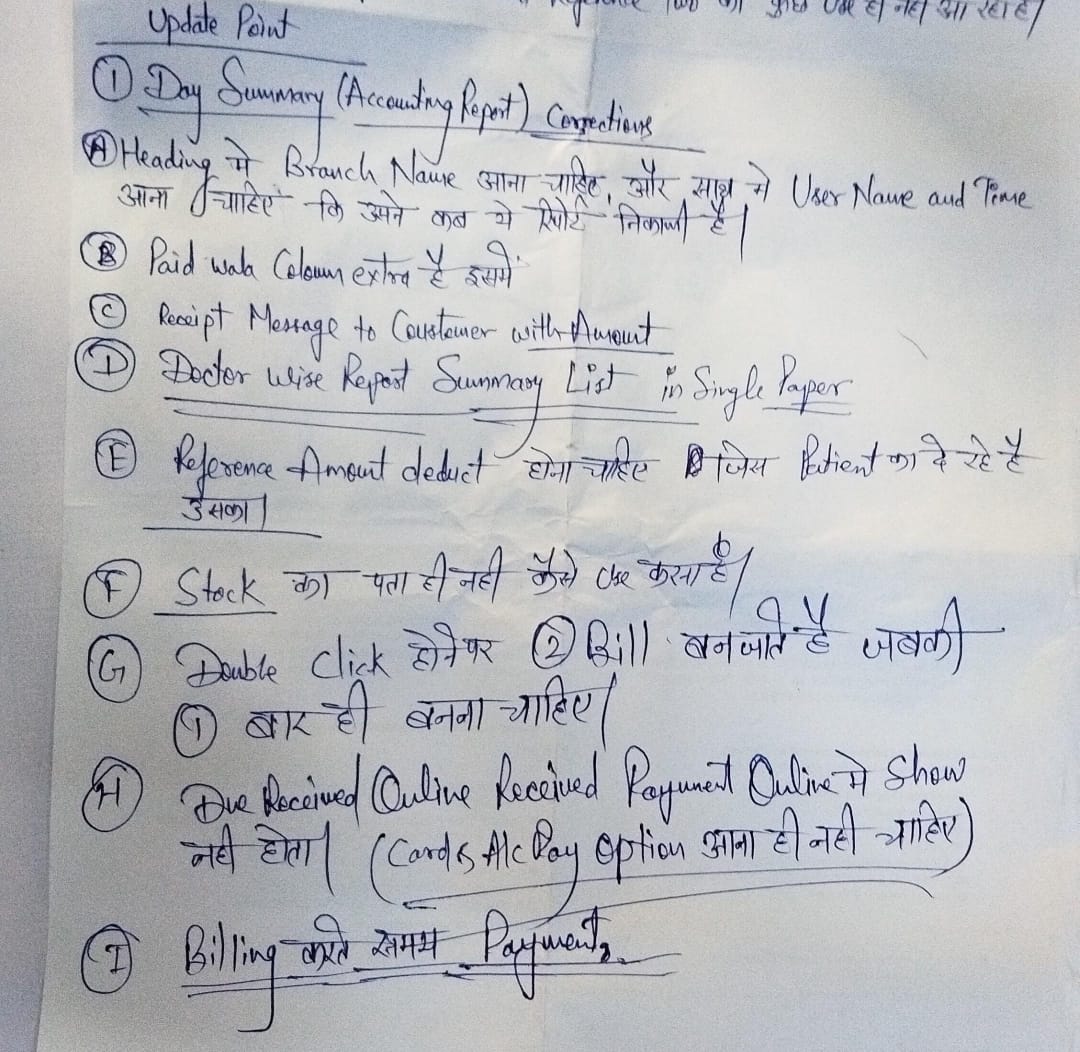 Reference Two का कुछ Use ही नही आ रहा है।
Update Point
① Day Summary (Accounting Report) Corrections
Ⓐ Heading मे Branch Name आना चाहिए, और साथ मे User Name and Time
आना चाहिए कि उसने कब ये रिपोर्ट निकाली है।
Ⓑ Paid wala Coloum extra है इसमें
Ⓒ Receipt Message to Coustomer with Amount
Ⓓ Doctor wise Report Summary List in Single Paper
Ⓔ Reference Amount deduct होना चाहिए जिस Patient का दे रहे है
उसका।
Ⓕ Stock का पता ही नही कैसे Use करना है।
Ⓖ Double Click होने पर ② Bill बन जाते है जबकी
① बार ही बनना चाहिए।
Ⓗ Due Received Online Received Payment Online मे Show
नही होता। (Card & A/c Pay option आना ही नही चाहिए)
Ⓘ Billing करते समय Payment